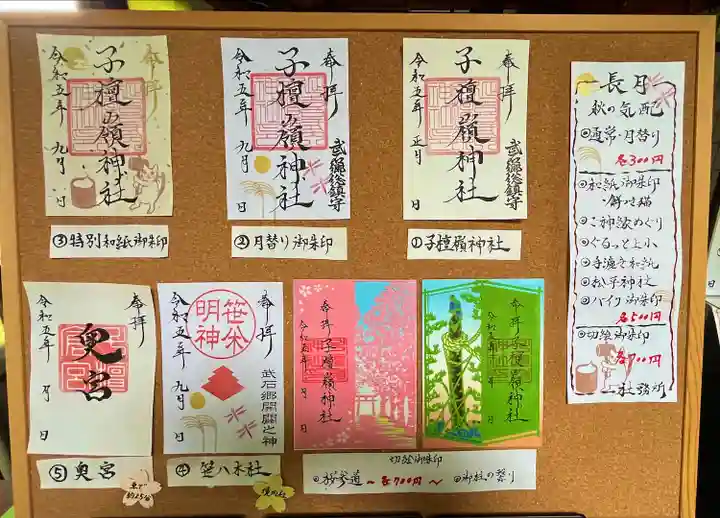 奉拝
子檀嶺神社
令和五年 九月 日
③特別和紙御朱印
奉拝
武石総鎮守
子檀嶺神社
令和五年 九月 日
②月替り御朱印
奉拝
子檀嶺神社
令和五年 正月 日
①子檀嶺神社
長月
秋の気配
◎通常・月替り
各300円
◎和紙御朱印
・餅つき猫
◎ご神紋めぐり
◎ぐるっと上小
◎手漉き和紙
◎松平神社
◎バイク御朱印
各500円
◎切絵御朱印
各700円
社務所
奉拝
奥宮
令和五年 月 日
⑤奥宮
奉拝
笹焼
明神
武石郷開闢之神
令和五年 九月 日
奉拝
子檀嶺神社
令和五年 月 日
奉拝
子檀嶺神社
令和五年 月 日
切絵御朱印
◎桜参道 〜各700円〜 ◎御柱の祭り